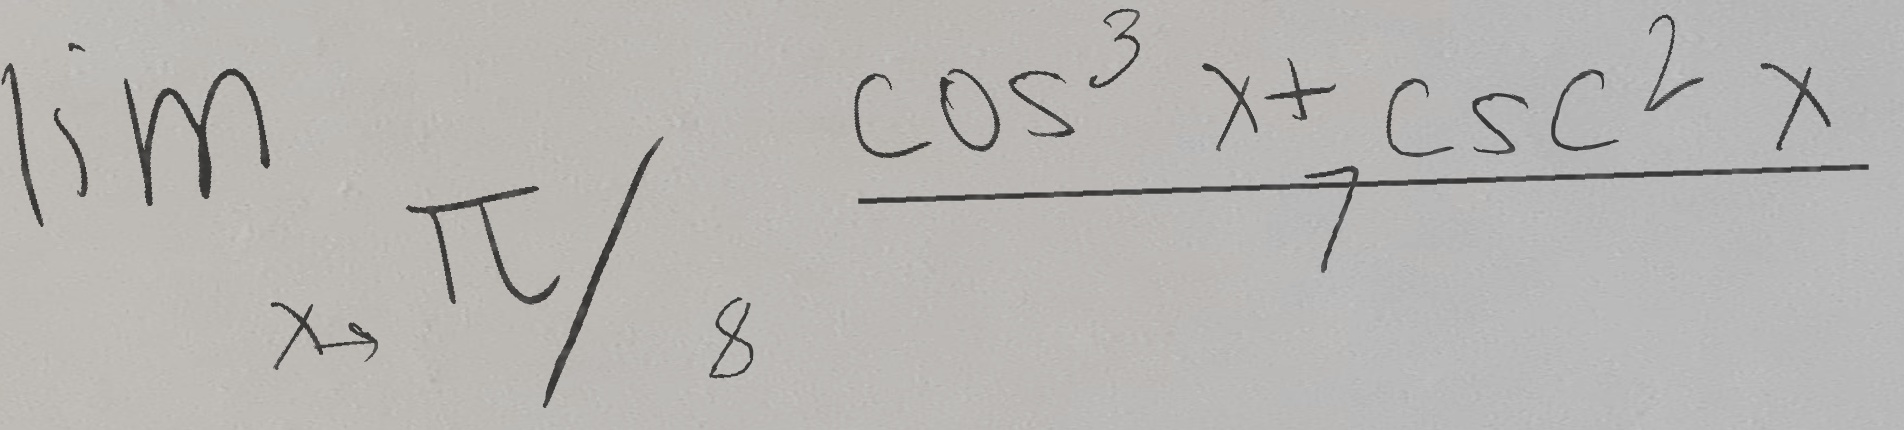 lim x→π/8 (cos³ x + csc² x)/7